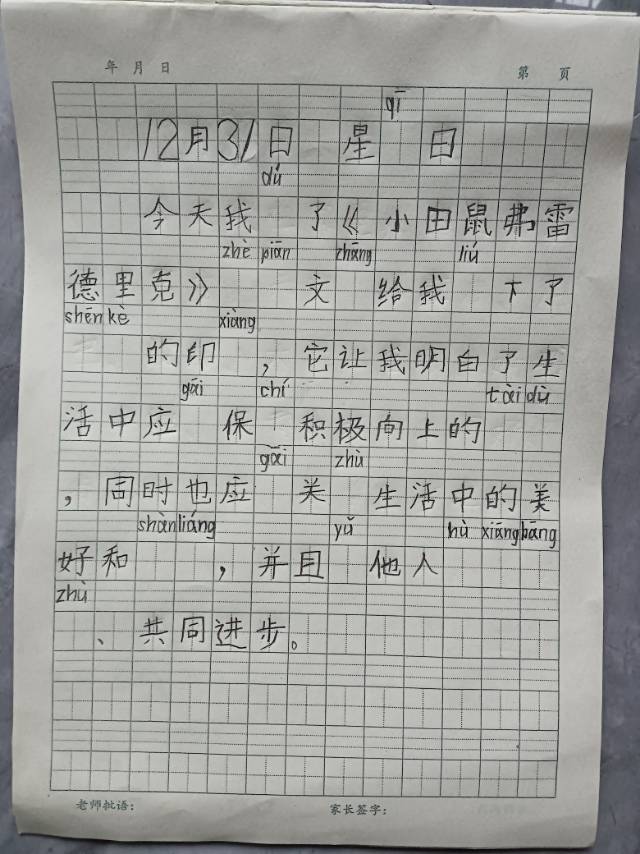 年 月 日 第 页
qī
12月31日 星 日
dú
今天我 了《小田鼠弗雷
zhè piān zhāng liú
德里克》 文 给我 下了
shēn kè xiàng
的印 ，它让我明白了生
gāi chí tài dù
活中应 保 积极向上的
gāi zhù
，同时也应 关 生活中的美
shàn liáng yǔ hù xiāng bāng
好和 ，并且 他人
zhù
、共同进步。
老师批语： 家长签字：